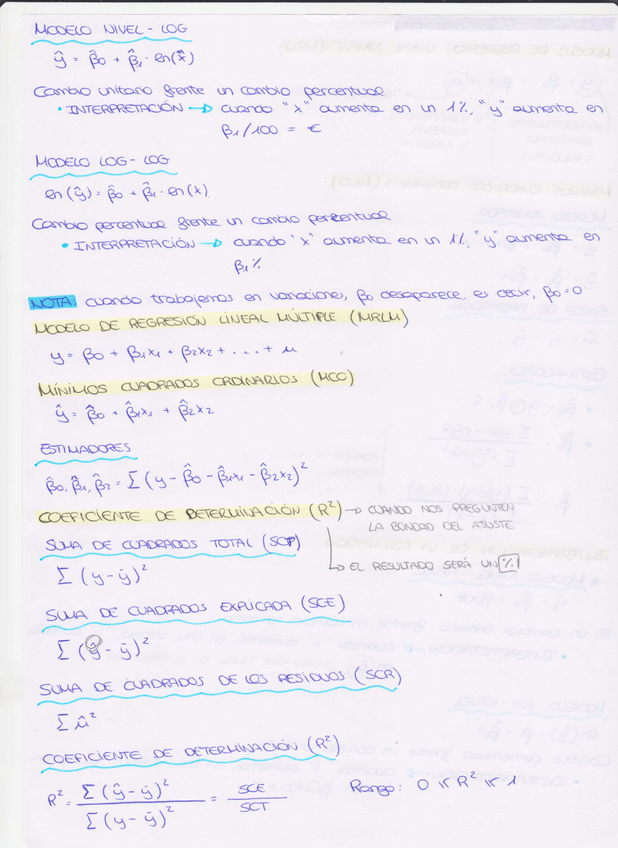 MODELO NIVEL - LOG
ŷ = β̂0 + β̂1 · en(x̂)
Cambio unitario frente un cambio percentual
• INTERPRETACIÓN → cuando "x" aumenta en un 1%, "y" aumenta en
β1/100 = €
MODELO LOG - LOG
en(ŷ) = β̂0 + β̂1 · en(x)
Cambio percentual frente un cambio percentual
• INTERPRETACIÓN → cuando "x" aumenta en un 1%, "y" aumenta en
β1%
NOTA: cuando trabajemos en variaciones, β0 desaparece, es decir, β0 = 0
MODELO DE REGRESIÓN LINEAL MÚLTIPLE (MRLM)
y = β0 + β1x1 + β2x2 + ... + u
MÍNIMOS CUADRADOS ORDINARIOS (MCO)
ŷ = β̂0 + β̂1x1 + β̂2x2
ESTIMADORES
β̂0, β̂1, β̂2 = Σ(y - β̂0 - β̂1x1 - β̂2x2)²
COEFICIENTE DE DETERMINACIÓN (R²) → CUANDO NOS PREGUNTEN
LA BONDAD DEL AJUSTE
SUMA DE CUADRADOS TOTAL (SCT)
↳ EL RESULTADO SERÁ UN %
Σ(y - ȳ)²
SUMA DE CUADRADOS EXPLICADA (SCE)
Σ(ŷ - ȳ)²
SUMA DE CUADRADOS DE LOS RESIDUOS (SCR)
Σ û²
COEFICIENTE DE DETERMINACIÓN (R²)
R² = Σ(ŷ - ȳ)² / Σ(y - ȳ)² = SCE / SCT Rango: 0 ≤ R² ≤ 1